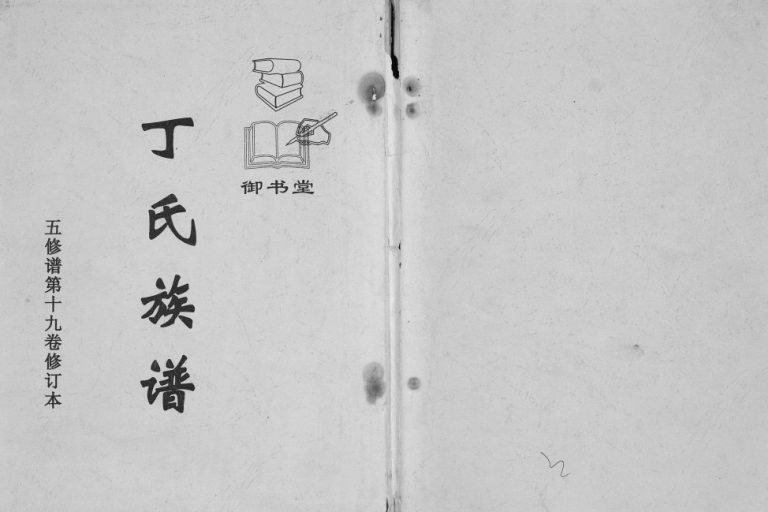 御书堂
丁氏族谱
五修谱第十九卷修订本